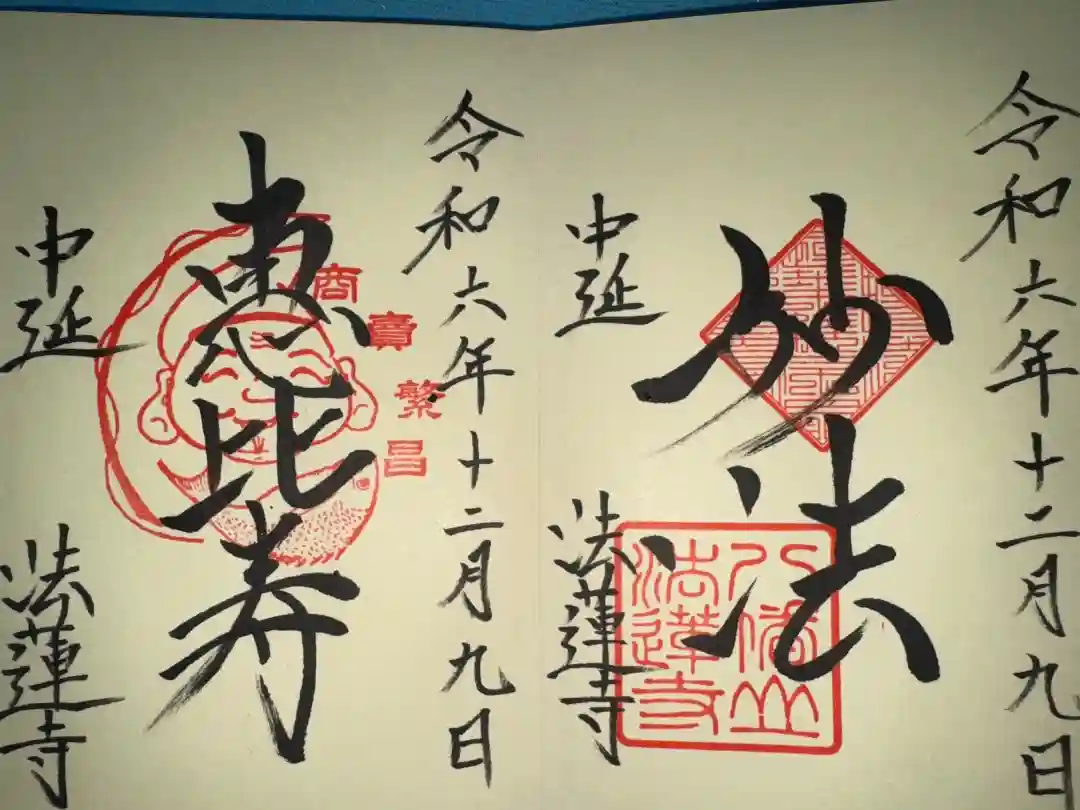 令和六年十二月九日
妙法
法蓮寺
中延 法蓮寺
令和六年十二月九日
商賣繁昌
恵比寿
中延 法蓮寺